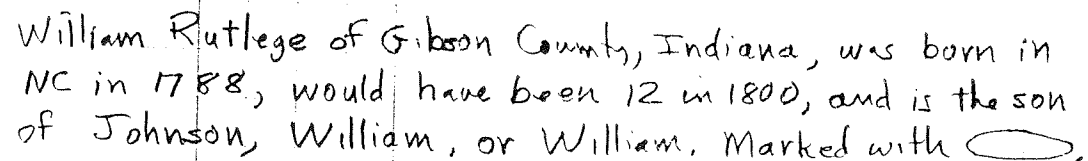 William Rutlege of Gibson County, Indiana, was born in
NC in 1788, would have been 12 in 1800, and is the son
of Johnson, William, or William. Marked with